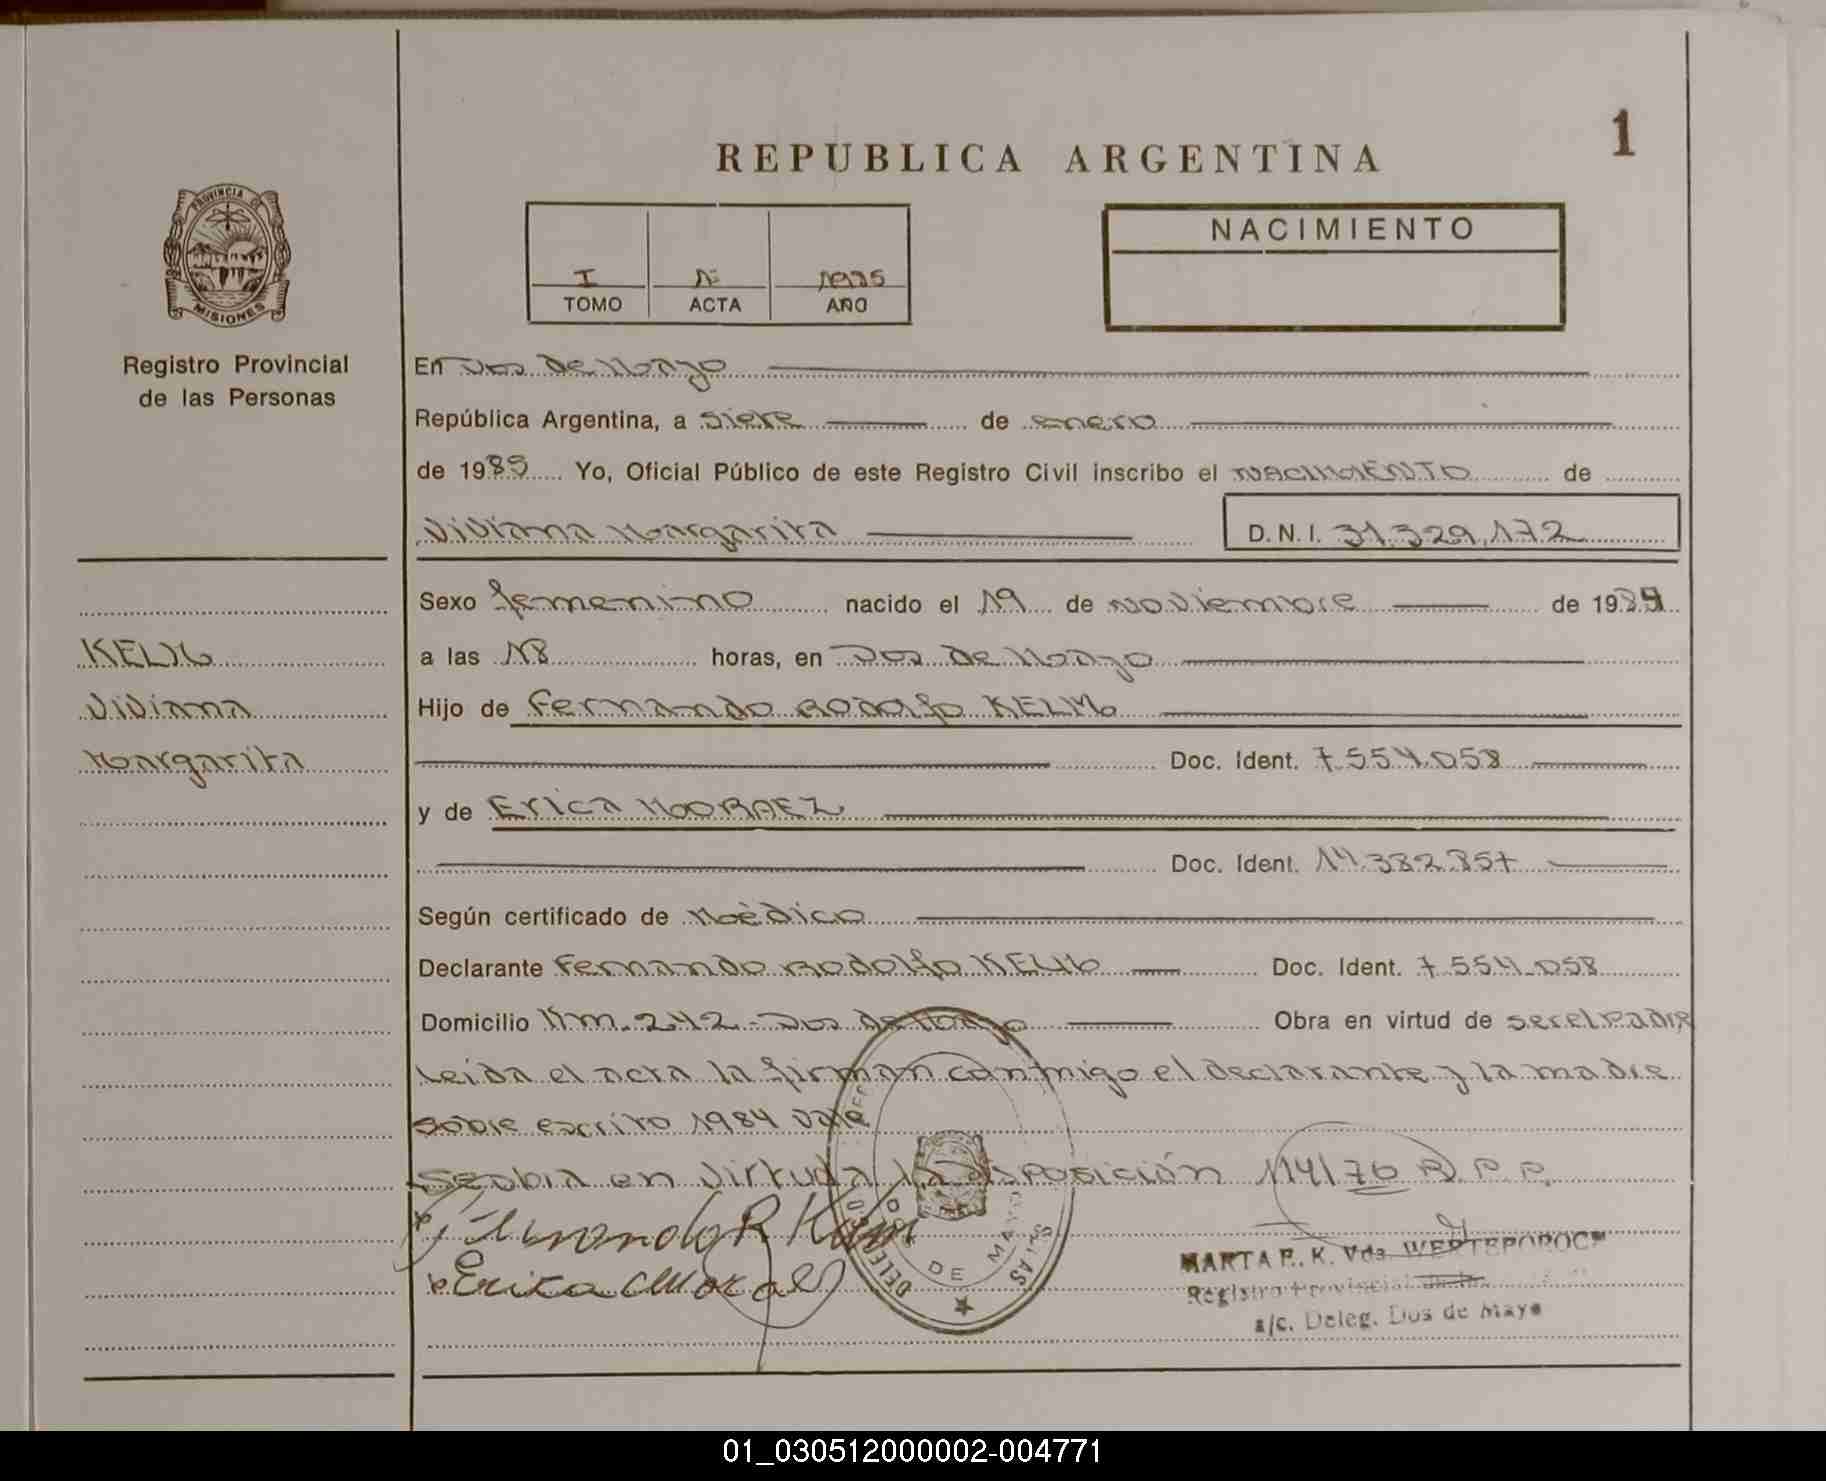 1
REPUBLICA ARGENTINA
PROVINCIA DE
MISIONES
Registro Provincial
de las Personas
I
TOMO
ACTA
AÑO
NACIMIENTO
En Dos de Mayo
República Argentina, a siete de enero
de 1985 Yo, Oficial Público de este Registro Civil inscribo el NACIMIENTO de
Viviana Margarita D.N.I. 31.329.172
Sexo femenino nacido el 19 de noviembre de 1984
a las 18 horas, en Dos de Mayo
Hijo de Fernando Rodolfo KELM
Doc. Ident. 7.554.058
y de Erica MORAEZ
Doc. Ident. 14.382.857
Según certificado de Médico
Declarante Fernando Rodolfo KELM Doc. Ident. 7.554.058
Domicilio Km. 242 - Dos de Mayo Obra en virtud de ser el padre
Leida el acta la firman conmigo el declarante y la madre
sobre escrito 1984 vale
en virtud a la disposición 114/76 R.P.P.
KELM
Viviana
Margarita
Fernando R Kelm
Erika
DOS DE MAYO
MARTA E. K. Vda.
Registro Provincial de las
a/c. Deleg. Dos de Mayo
01_030512000002-004771